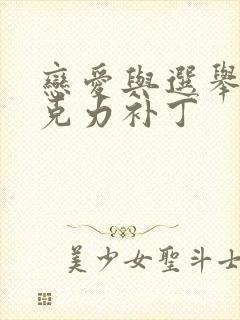 戀愛與選舉
克力补丁
美少女聖斗士